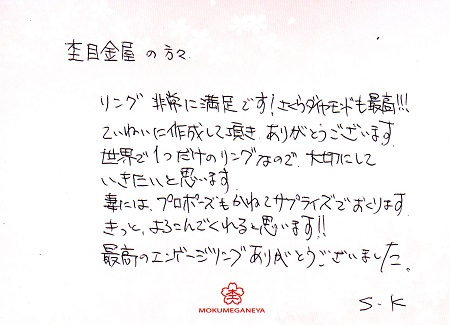 杢目金屋 の 方々
リング 非常に満足です！さくらダイヤモンドも最高!!!
ていねいに作成して頂き ありがとうございます
世界で1つだけのリングなので、大切にして
いきたいと思います
妻には、プロポーズもかねてサプライズでおくります
きっと、よろこんでくれると思います!!
最高のエンゲージリングありがとうございました。
杢
MOKUMEGANEYA
S-K